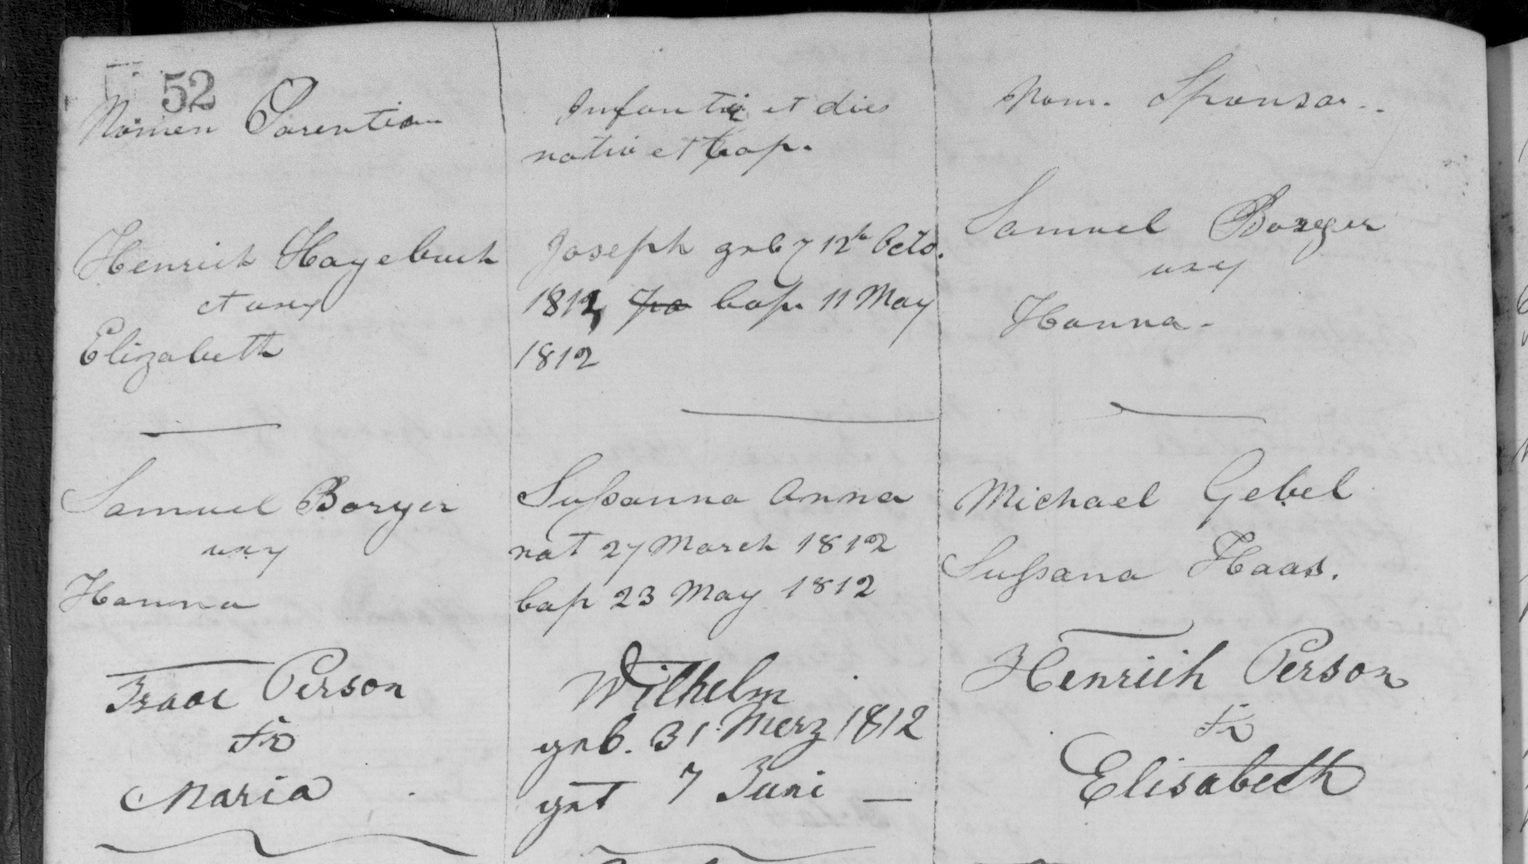 52
Nomen Parentim
Infantis et dies
nativ et bap.
Nom. Sponsor..
Henrich Hagebuch
et uxy
Elizabeth
Joseph geb 12th Octo.
1812, bap. 11 May
1812
Samuel Boryer
uxy
Hanna.
Samuel Boryer
uxy
Hanna
Sussanna Anna
nat 27 March 1812
bap 23 May 1812
Michael Gebel
Sussana Haas.
Isaac Person
Fr
Maria
Wilhelm
geb. 31 Merz 1812
get 7 Juni —
Henrich Person
Fr
Elisabeth